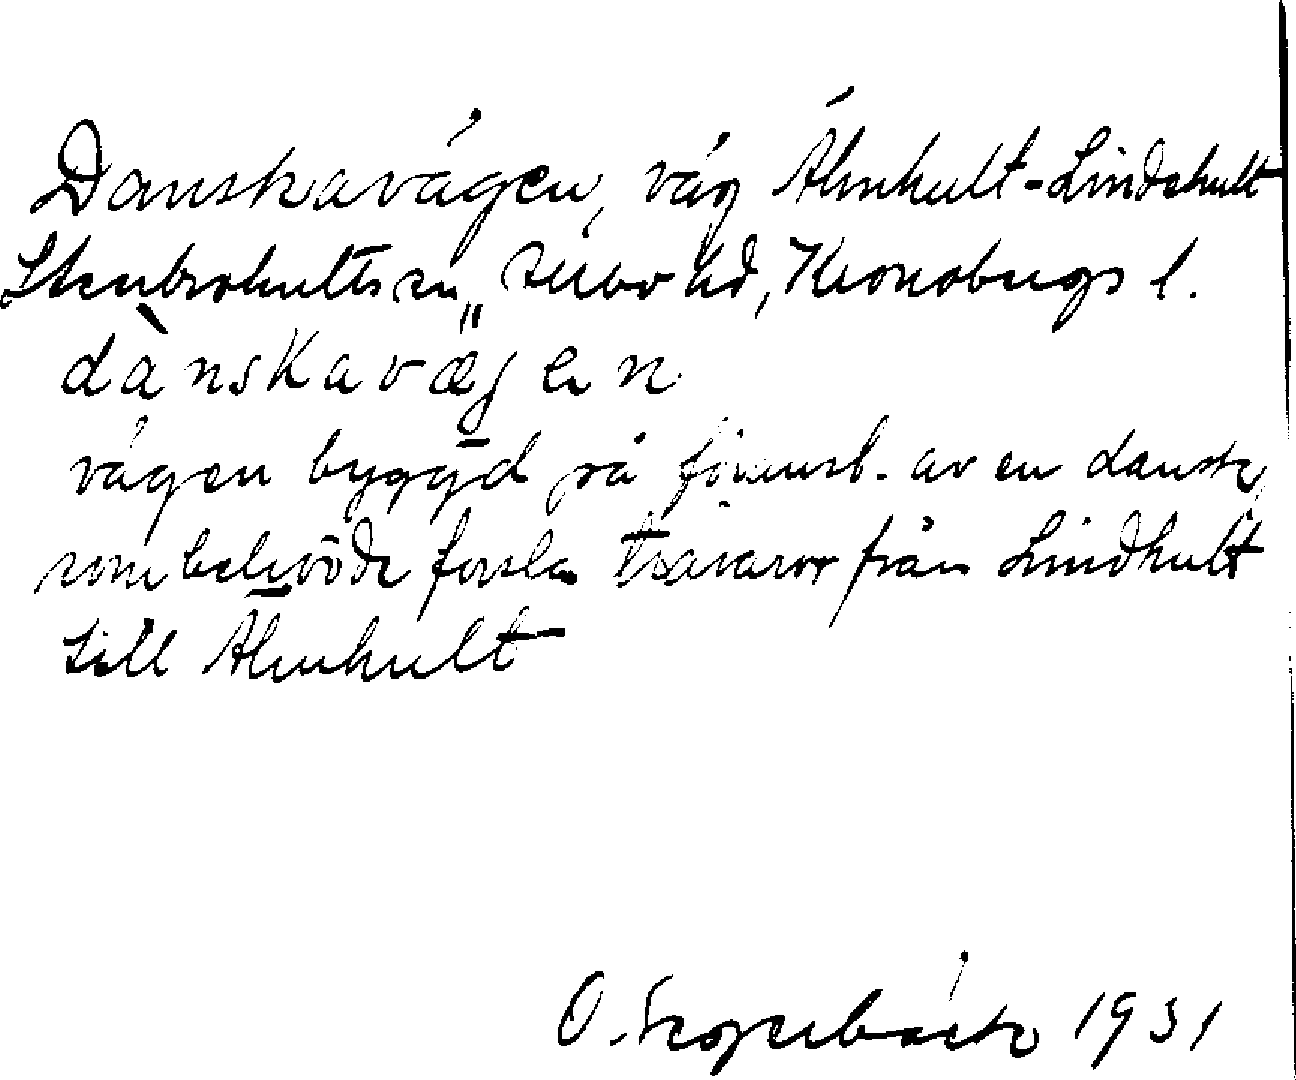 Danskavägen, väg Älmhult-Lindehult
Stenbrohults sn, Allbo hd, Kronobergs l.
dànskavæ̈gen
vägen byggd på föranst. av en dansk,
som behövde forsla trävaror från Lindhult
till Älmhult
O. Segerbäck 1931